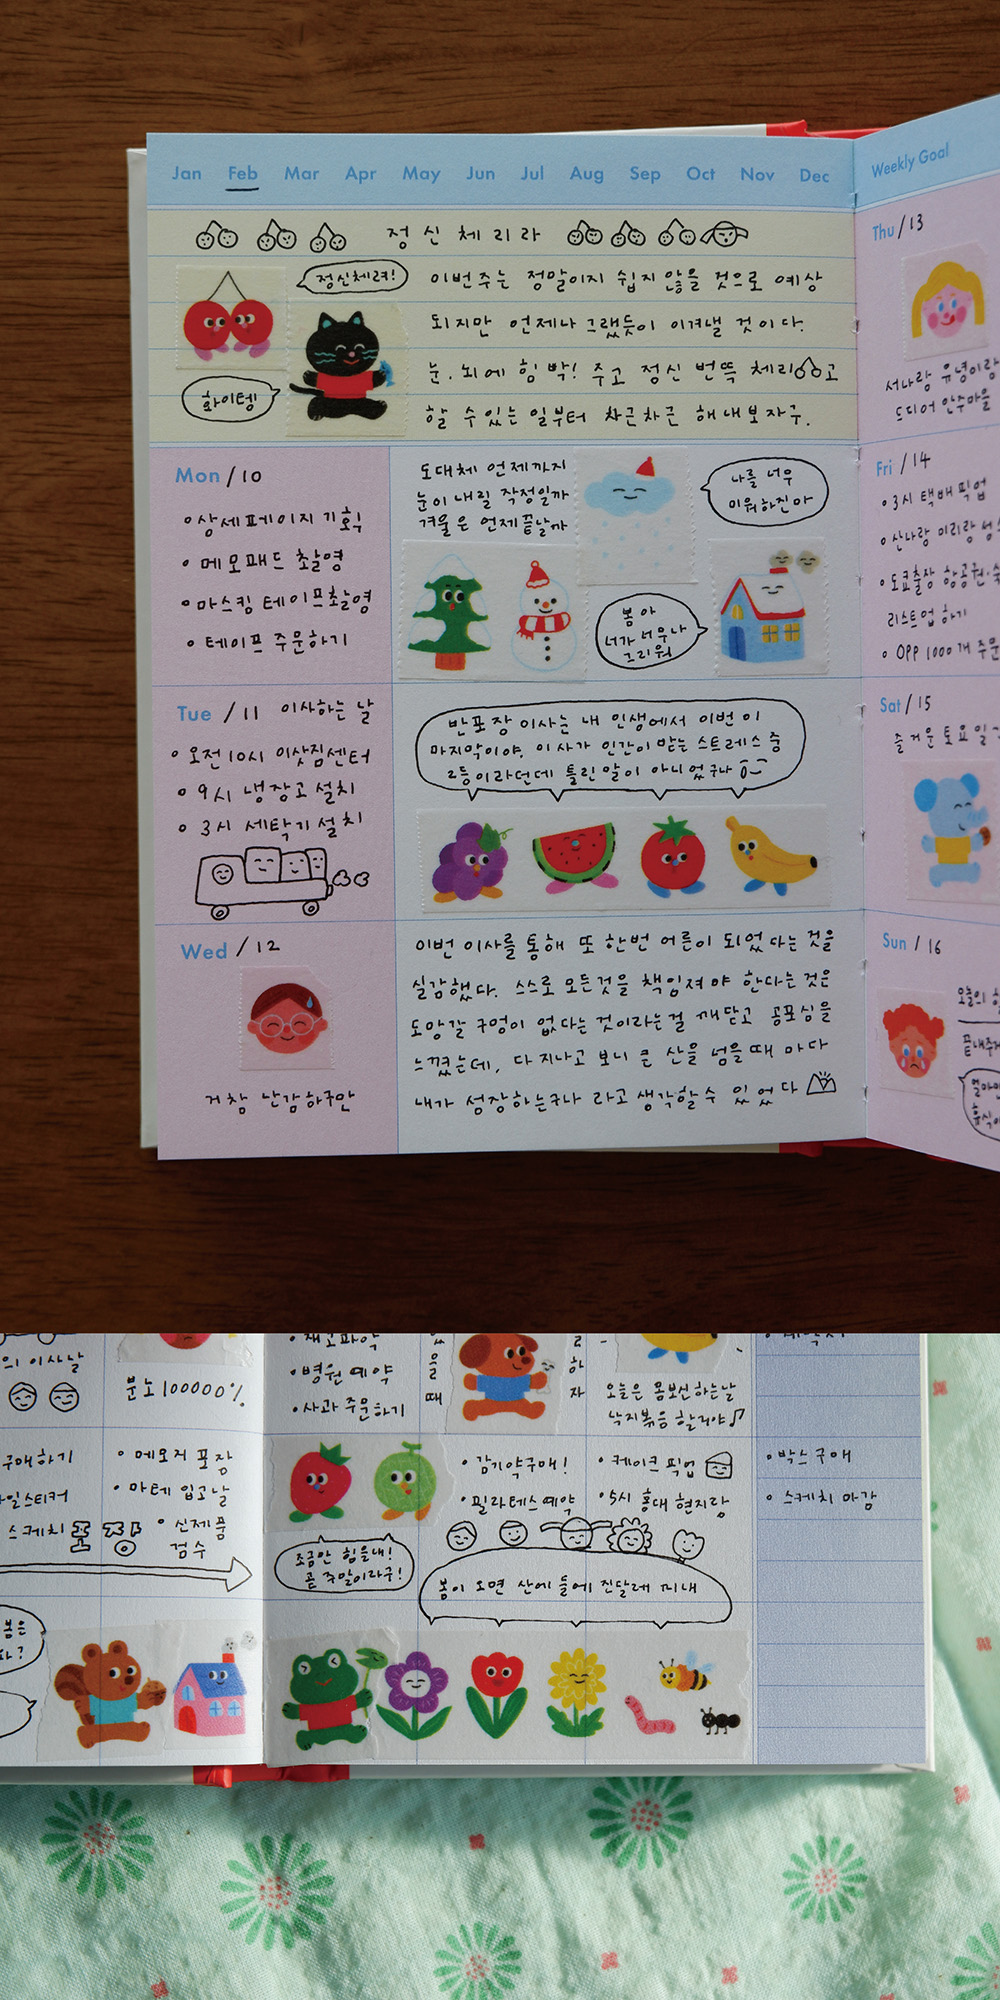 Jan Feb Mar Apr May Jun Jul Aug Sep Oct Nov Dec
정신체리라
정신체려!
화이텡!
이번주는 정말이지 쉽지 않을 것으로 예상
되지만 언제나 그랬듯이 이겨낼 것이다.
눈.뇌에 힘 빡! 주고 정신 번뜩 체리고
할 수 있는 일부터 차근차근 해내보자구.
Mon /10
상세페이지 기획
메모패드 촬영
마스킹 테이프 촬영
테이프 주문하기
도대체 언제까지
눈이 내릴 작정일까
겨울은 언제 끝날까
나를 너무
미워하진마
봄아
너가 너무나
그리워
Tue /11 이사하는 날
오전 10시 이삿짐센터
9시 냉장고 설치
3시 세탁기 설치
반포장 이사는 내 인생에서 이번이
마지막이야. 이사가 인간이 받는 스트레스 중
2등이라던데 틀린말이 아니었구나
Wed /12
거참 난감하구만
이번 이사를 통해 또 한번 어른이 되었다는 것을
실감했다. 스스로 모든것을 책임져야 한다는 것은
도망갈 구멍이 없다는 것이라는걸 깨닫고 공포심을
느꼈는데, 다 지나고 보니 큰 산을 넘을 때마다
내가 성장하는구나 라고 생각할 수 있었다
Weekly Goal
Thu /13
서나랑 유녕이랑
드디어 안주마을
Fri /14
3시 택배 픽업
산나랑 미리랑
도쿄출장 항공권·숙
리스트업 하기
OPP 1000개 주문
Sat /15
즐거운 토요일
Sun /16
오늘의
끝내주게
얼마만
휴식이
의 이사날
분노 100000%
재고파악
병원 예약
사과 주문하기
있
을
때
하
자
오늘은 몸보신하는날
낙지볶음 할거야
구매하기
일스티커
스케치
포장
메모지 포장
마테 입고날
신제품
검수
감기약구매!
필라테스 예약
케이크 픽업
5시 홍대 현지랑
박스 구매
스케치 마감
조금만 힘을내!
곧 주말이라구!
봄이 오면 산에 들에 진달래 피네
봄은